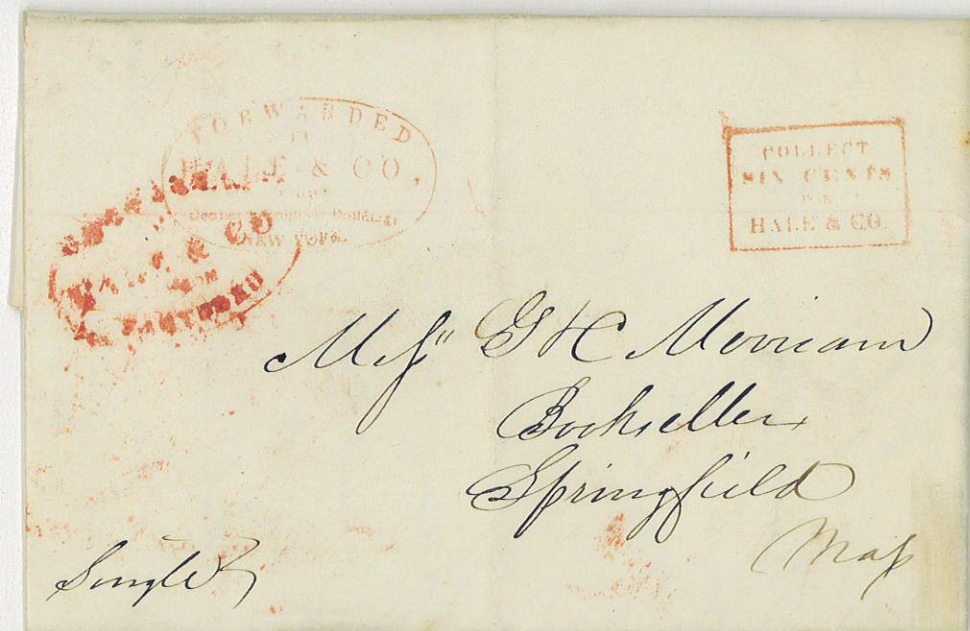 FORWARDED
BY
HALE & CO,
FROM
NEW YORK.
HALE & CO
FROM
HARTFORD
COLLECT
SIX CENTS
FOR
HALE & CO.
Messrs G & C Merriam
Booksellers
Springfield
Mass
Single